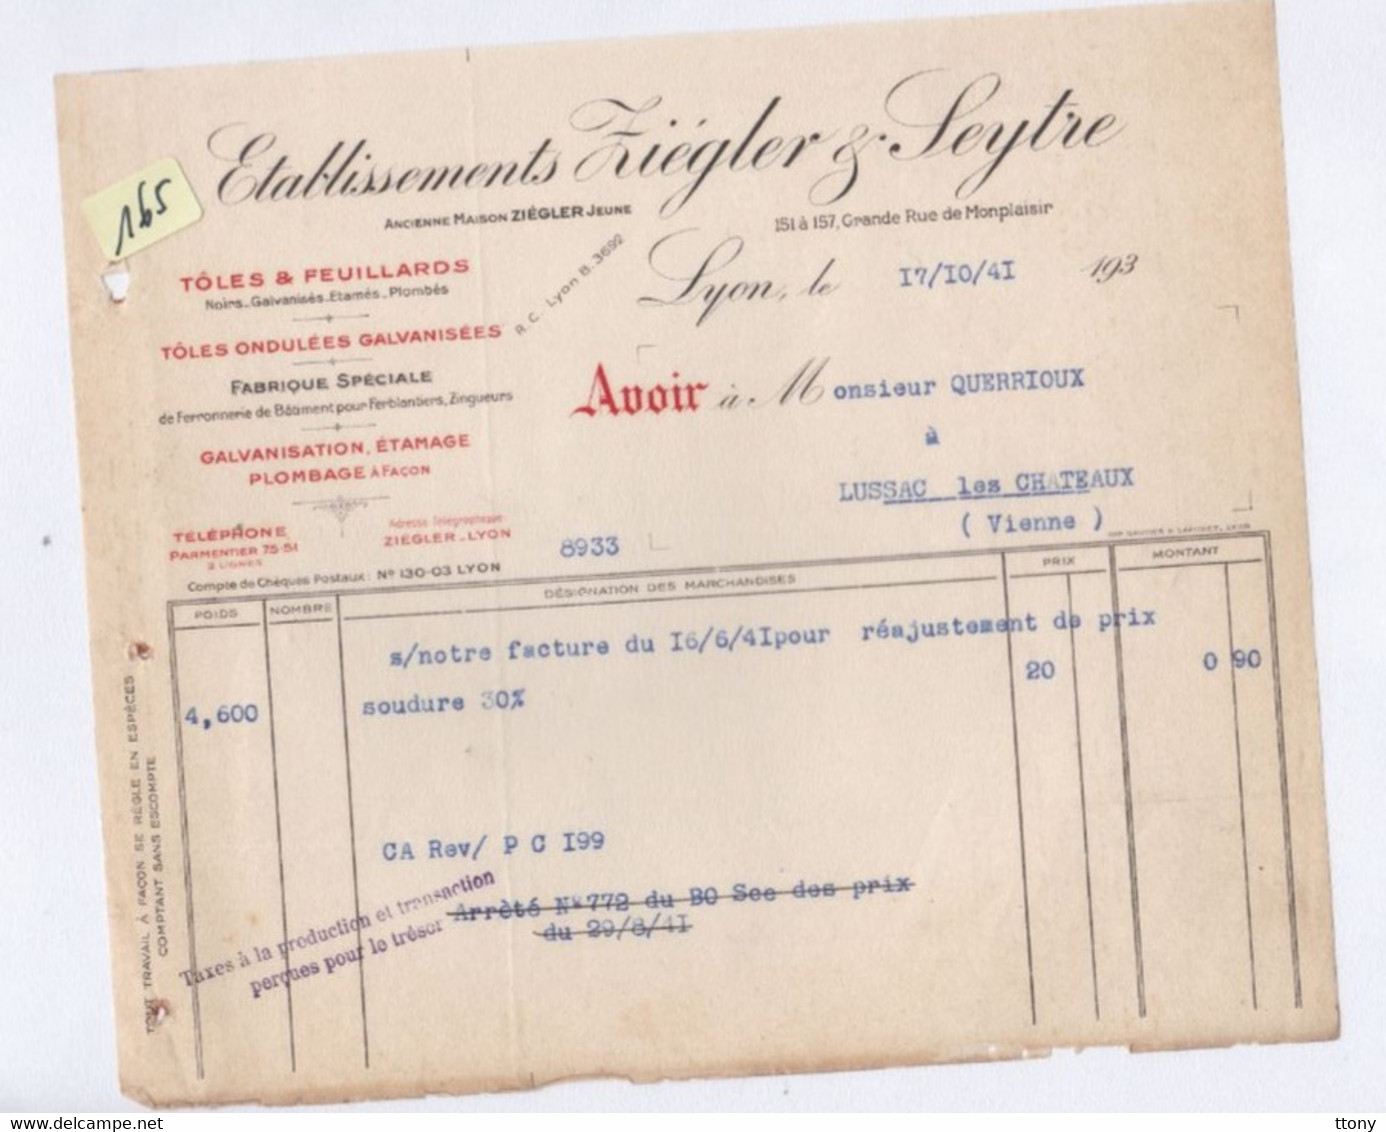 165
Etablissements Ziégler & Seytre
ANCIENNE MAISON ZIÉGLER JEUNE
151 à 157, Grande Rue de Monplaisir
R.C. Lyon B. 3692
Lyon, le 17/10/41 193
TÔLES & FEUILLARDS
Noirs_Galvanisés_Etamés_Plombés
TÔLES ONDULÉES GALVANISÉES
FABRIQUE SPÉCIALE
de Ferronnerie de Bâtiment pour Ferblantiers, Zingueurs
GALVANISATION, ÉTAMAGE
PLOMBAGE À FAÇON
TÉLÉPHONE
PARMENTIER 75-51
2 LIGNES
Adresse Télégraphique
ZIÉGLER_LYON
Compte de Chèques Postaux: Nº 130-03 LYON
Avoir à Monsieur QUERRIOUX
à
LUSSAC les CHATEAUX
( Vienne )
8933
POIDS NOMBRE DÉSIGNATION DES MARCHANDISES PRIX MONTANT
s/notre facture du 16/6/41pour réajustement de prix
4,600 soudure 30% 20 0 90
CA Rev/ P C 199
Arrêté N°772 du BO Sec des prix
du 29/8/41
Taxes à la production et transaction
perçues pour le trésor
TOUT TRAVAIL À FAÇON SE RÈGLE EN ESPÈCES
COMPTANT SANS ESCOMPTE
www.delcampe.net
ttony